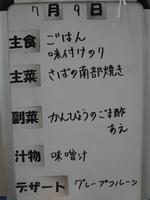 7月9日
主食 ごはん
味付けのり
主菜 さばの南部焼き
副菜 かんぴょうのごま酢
あえ
汁物 味噌汁
デザート グレープフルーツ